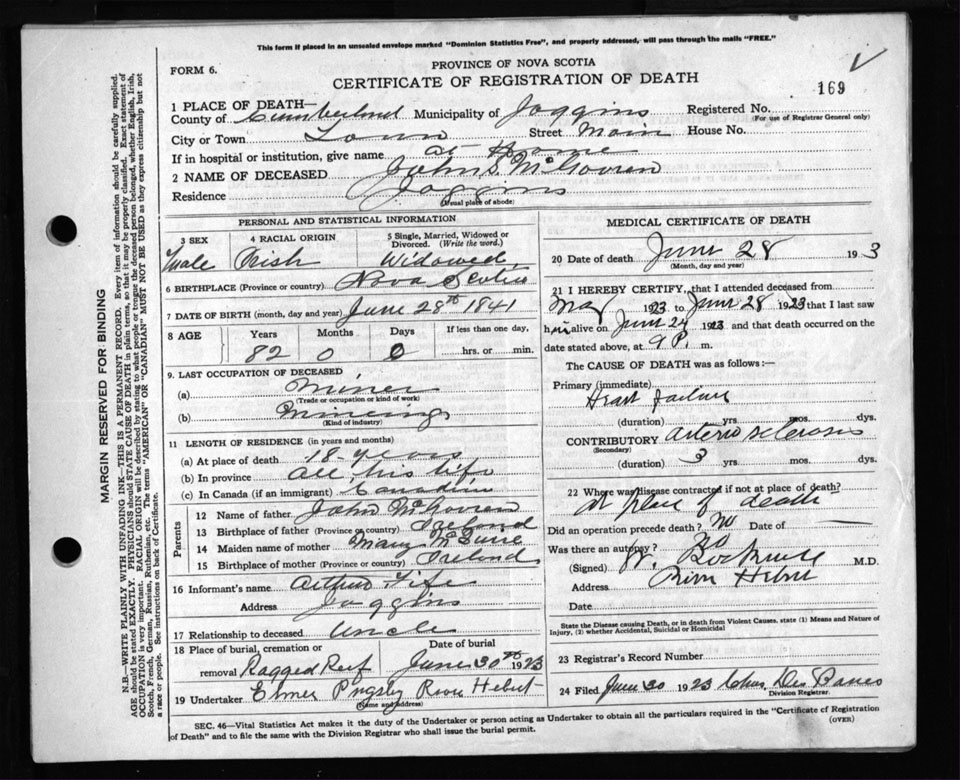 This form if placed in an unsealed envelope marked "Dominion Statistics Free", and properly addressed, will pass through the mails "FREE."
FORM 6.
PROVINCE OF NOVA SCOTIA
CERTIFICATE OF REGISTRATION OF DEATH
169
1 PLACE OF DEATH—
County of Cumberland Municipality of Joggins Registered No.
(For use of Registrar General only)
City or Town Town Street Main House No.
If in hospital or institution, give name at Home
2 NAME OF DECEASED John S. McGovren
Residence Joggins
(Usual place of abode)
PERSONAL AND STATISTICAL INFORMATION
3 SEX 4 RACIAL ORIGIN 5 Single, Married, Widowed or Divorced. (Write the word.)
Male Irish Widowed
6 BIRTHPLACE (Province or country) Nova Scotia
7 DATE OF BIRTH (month, day and year) June 28th 1841
8 AGE Years Months Days If less than one day,
82 0 0 hrs. or min.
9. LAST OCCUPATION OF DECEASED
(a) Miner
(Trade or occupation or kind of work)
(b) Minceing
(Kind of industry)
11 LENGTH OF RESIDENCE (in years and months)
(a) At place of death 18-years
(b) In province all his life
(c) In Canada (if an immigrant) Canadian
Parents
12 Name of father John McGovren
13 Birthplace of father (Province or country) Ireland
14 Maiden name of mother Mary
15 Birthplace of mother (Province or country) Ireland
16 Informant's name Arthur Fife
Address Joggins
17 Relationship to deceased Uncle
18 Place of burial, cremation or removal Ragged Reef
Date of burial June 30th 1923
19 Undertaker Elmer Pugsley River Hebert
(Name and address)
MEDICAL CERTIFICATE OF DEATH
20 Date of death June 28 19 3
(Month, day and year)
21 I HEREBY CERTIFY, that I attended deceased from
May 1923 to June 28 1923 that I last saw
him alive on June 24 1923 and that death occurred on the
date stated above, at 9 P. m.
The CAUSE OF DEATH was as follows:—
Primary (immediate)
Heart failure
(duration) yrs mos. dys.
CONTRIBUTORY arterio sclerosis
(Secondary)
(duration) 3 yrs mos. dys.
22 Where was disease contracted if not at place of death?
At place of death
Did an operation precede death? No Date of —
Was there an autopsy? No
(Signed) W. Rockwell M.D.
Address River Hebert
Date
State the Disease causing Death, or in death from Violent Causes, state (1) Means and Nature of
Injury, (2) whether Accidental, Suicidal or Homicidal
23 Registrar's Record Number
24 Filed June 30 1923 Chas. Des Barres
Division Registrar.
SEC. 46—Vital Statistics Act makes it the duty of the Undertaker or person acting as Undertaker to obtain all the particulars required in the "Certificate of Registration
of Death" and to file the same with the Division Registrar who shall issue the burial permit.
(OVER)
MARGIN RESERVED FOR BINDING
N.B.—WRITE PLAINLY WITH UNFADING INK—THIS IS A PERMANENT RECORD. Every item of information should be carefully supplied.
AGE should be stated EXACTLY. PHYSICIANS should STATE CAUSE OF DEATH in plain terms, so that it may be properly classified. Exact statement of
OCCUPATION is very important. RACIAL ORIGIN will be described by stating to what people or tongue the deceased person belonged, whether English, Irish,
Scotch, French, German, Russian, Ruthenian, etc. The terms "AMERICAN" OR "CANADIAN" MUST NOT BE USED as they express citizenship but not
a race or people. See instructions on back of Certificate.